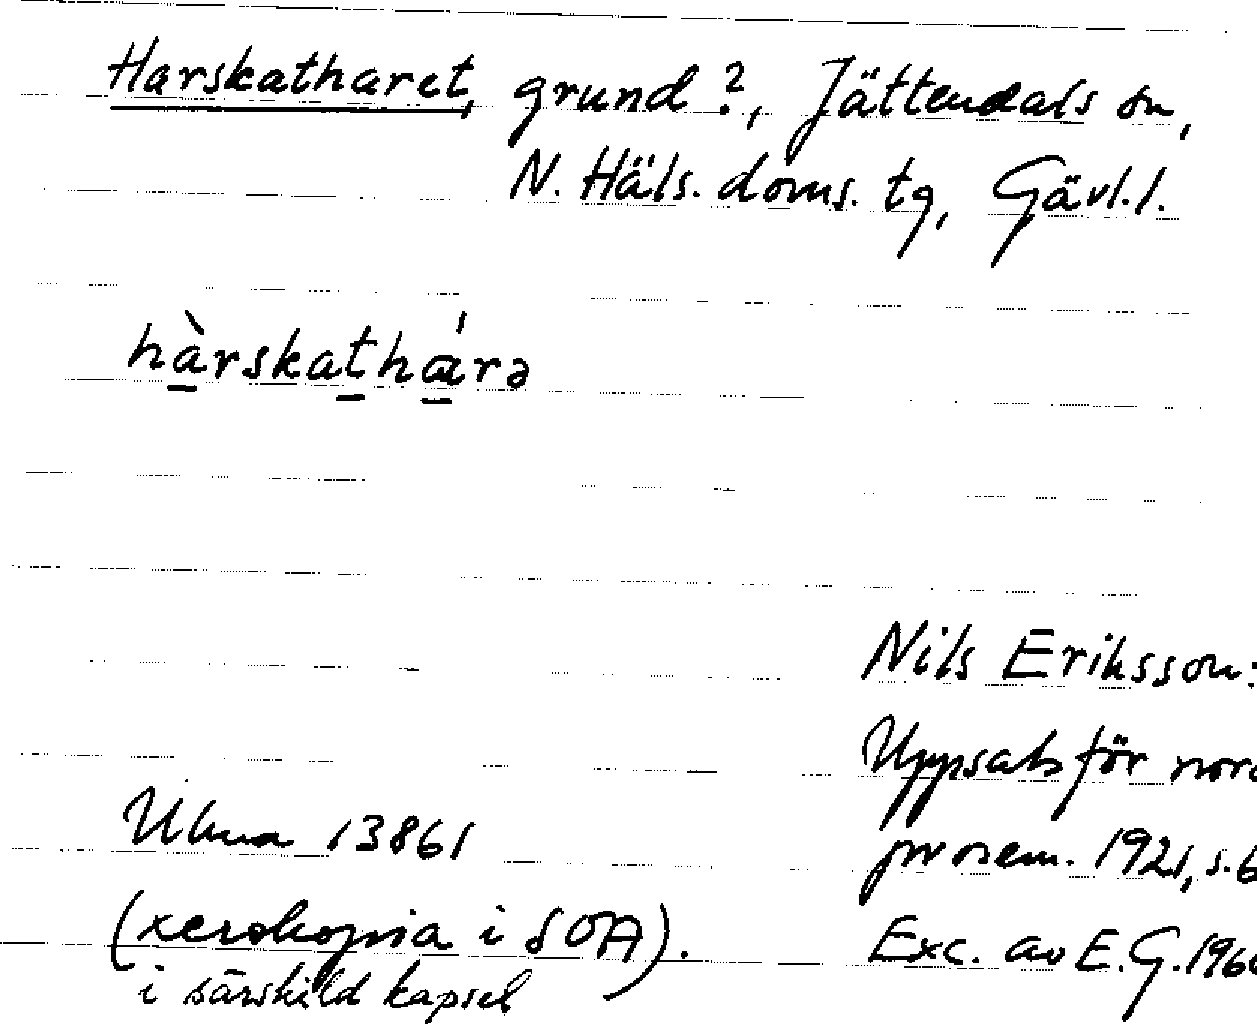 Harskatharet, grund?, Jättendals sn,
N. Häls. doms. tg, Gävl.l.
hàrskathárə
Nils Eriksson:
Uppsats för nord
prosem. 1921, s.6
Ulma 13861
(xerokopia i SOA).
i särskild kapsel
Exc. av E.G. 196